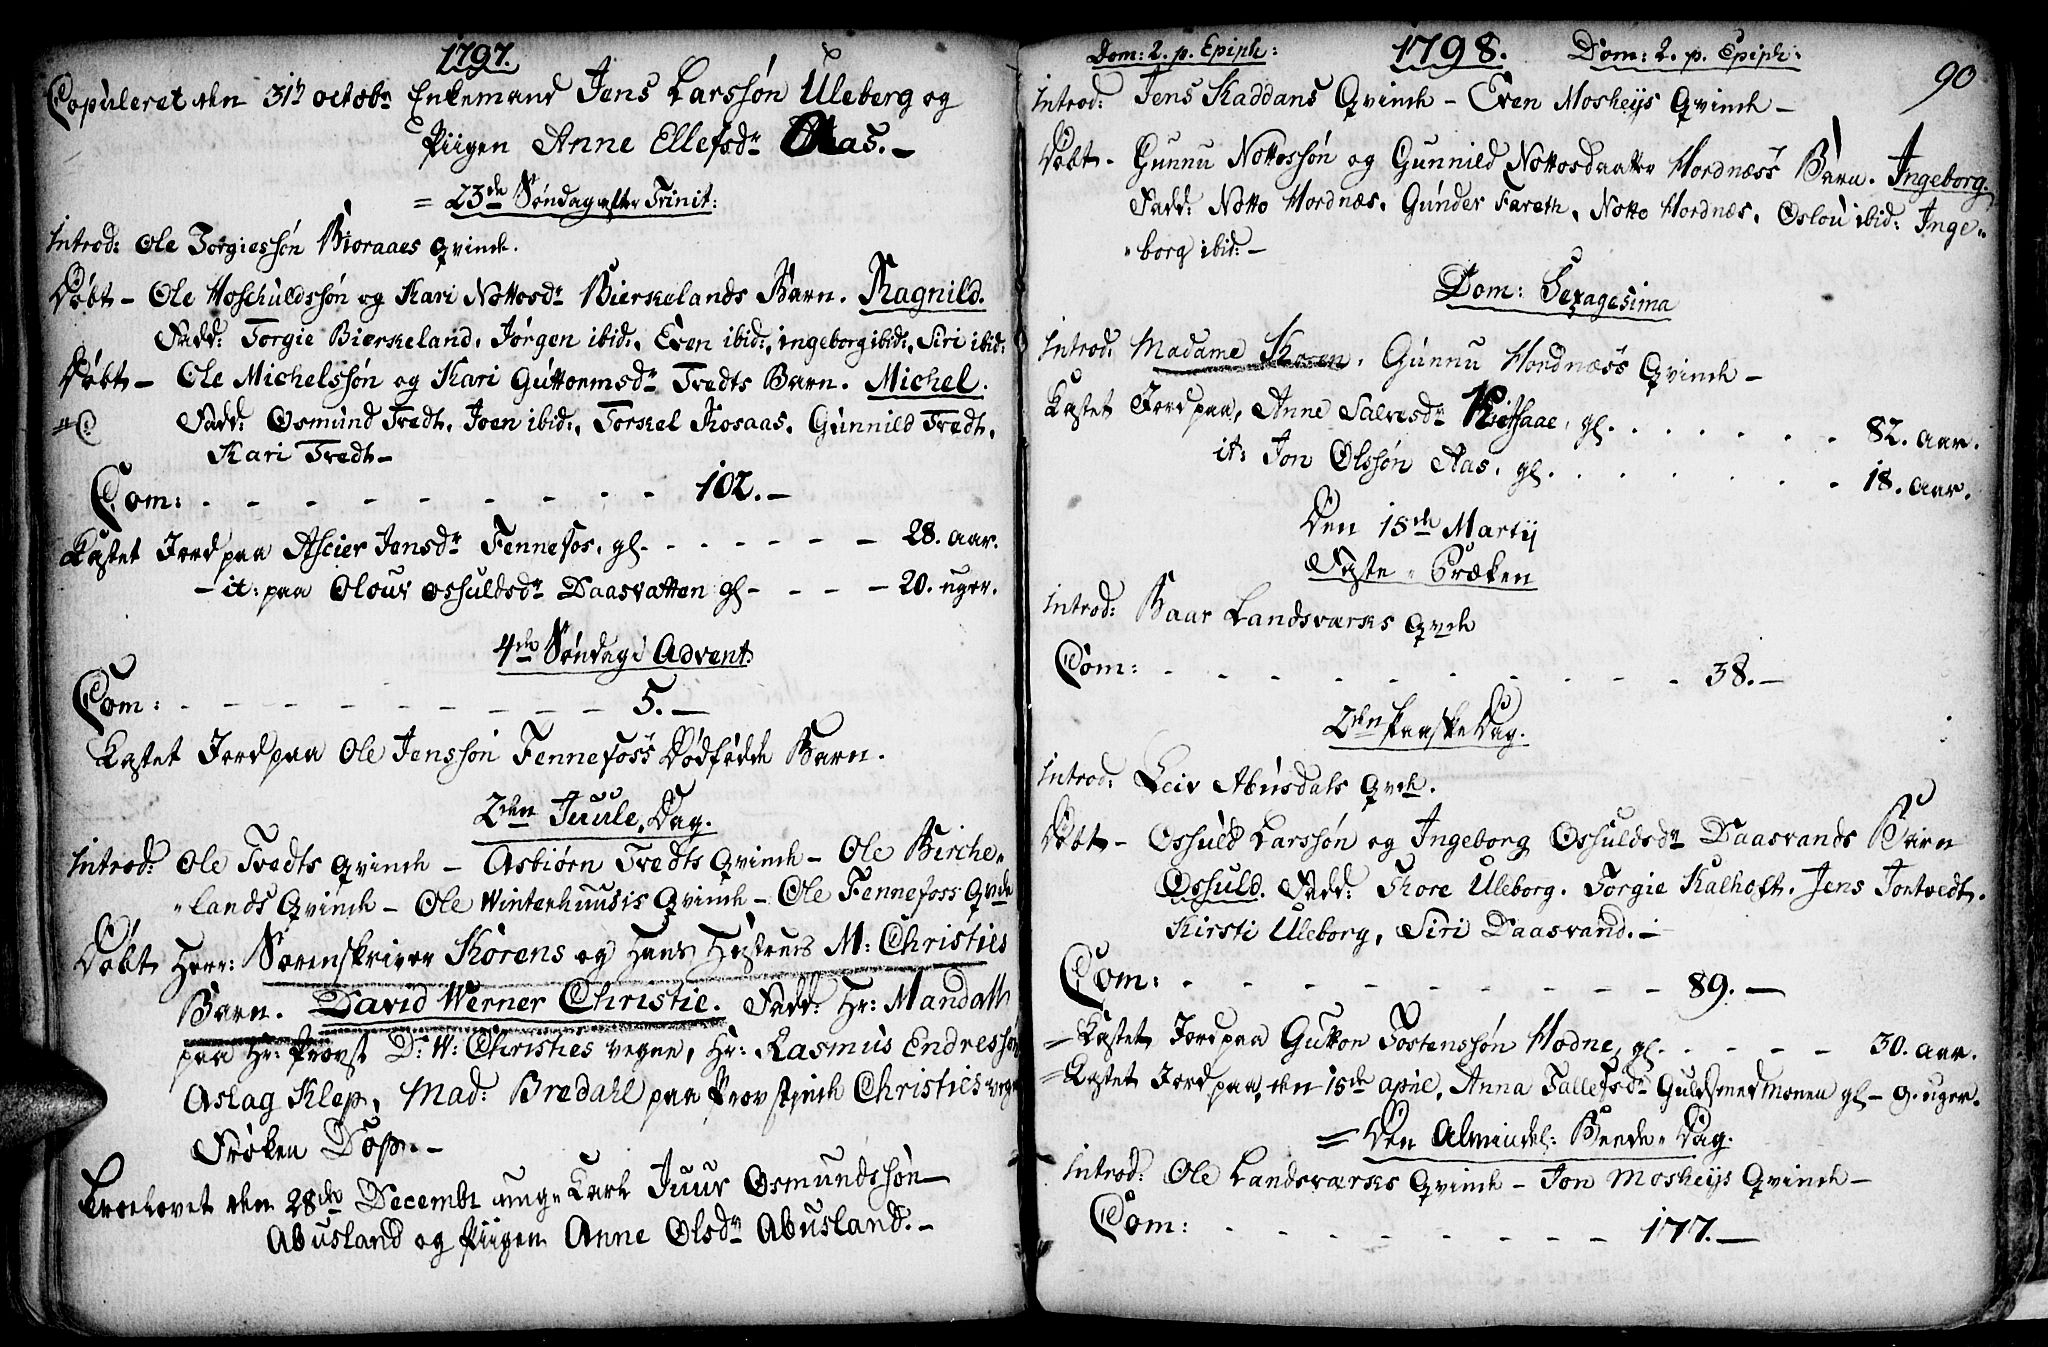 1797.
Copuleret den 31th octobr Enkemand Jens Larssøn Uleberg og
Piigen Anne Ellefsdr Aas. -
= 23de Søndag efter Trinit:
Introd: Ole Torgiessøn Bioraaes Qvinde.
Døbt - Ole Hoschuldssøn og Kari Nottosdr Bierkelands Barn. Ragnild.
Fadd: Torgie Bierkeland, Jörgen ibid:, Even ibid:, ingeborg ibid:, Siri ibid:
Døbt - Ole Michelssøn og Kari Guttormsdr Tredts Barn. Michel.
Fadd: Osmund Tredt, Joen ibid:, Torkel Rosaas, Gunnild Tredt,
Kari Tredt -
Com: - - - - - - - - - 102. -
Kastet Jord paa Ascier Jensdr Fennefos, gl. - - - - - - 28. aar.
- it: paa Olour Oshuldsdr Daasvatten gl - - - - 20. uger.
4de Søndag i Advent:
Com: - - - - - - - - - 5. -
Kastet Jord paa Ole Jenssøn Fennefoss Dødfødde Barn.
2den Juule-Dag.
Introd: Ole Tredts Qvinde - Asbiørn Tredts Qvinde - Ole Birche-
"lands Qvinde - Ole Winterhuusis Qvinde - Ole Fennefoss Qvde
Døbt Herr: Sorenskriver Korens og Hans Hustrues M: Christies
Barn. David Werner Christie. Fadd: Hr: Mandall
paa Hr: Provst D: W: Christies vegne, Hr: Rasmus Endressøn
Aslag Klep, Mad: Bredahl paa Provstinde Christies vegne
Frøken Dop. -
Troelovet den 28de Decembr unge Karl Juur Osmundssøn
Abusland og Piigen Anne Olsdr Abusland. -
Dom: 2. p. Epiph: 1798. Dom: 2. p. Epiph:
90
Introd: Jens Kaddans Qvinde - Even Mosheijs Qvinde -
Døbt - Gunnu Nottossøn og Gunnild Nottosdaatter Hordnæss Barn. Ingeborg.
Fadd: Notto Hordnæs, Gunder Fareth, Notto Hordnæs, Oslou ibid: Inge"
"borg ibid: -
Dom: Sexagesima
Introd: Madame Koren, Gunnu Hordnæss Qvinde -
Kastet Jord paa, Anne Salvesdr, gl. - - - - - - 82. aar.
it: Jon Olssøn Aas, gl. - - - - - - 18. aar.
Den 15de Martij
Faste-Præken
Introd: Baar Landsværks Qvde
Com: - - - - - - - - - - 38. -
2den Paaske Dag.
Introd: Leiv Abusdals Qvde.
Døbt - Oshuld Larssøn og Ingeborg Oshuldsdr Daasvands Barn
Oshuld. Fadd: Tore Uleborg, Torgie Kalhoft, Jens Jortvedt,
Kirsti Uleborg, Siri Daasvand. -
Com: - - - - - - - - - 89. -
= Kastet Jord paa Gutton Tostenssøn Hodne, gl. - - - - - 30. aar.
= Kastet Jord paa, den 15de april, Anna Tallefsdr Guldsmedmonen gl - 9. uger.
= Den Almindel: Beede-Dag.
Introd: Ole Landsværks Qvinde - Jon Mosheijs Qvinde -
Com: - - - - - - - 177. -